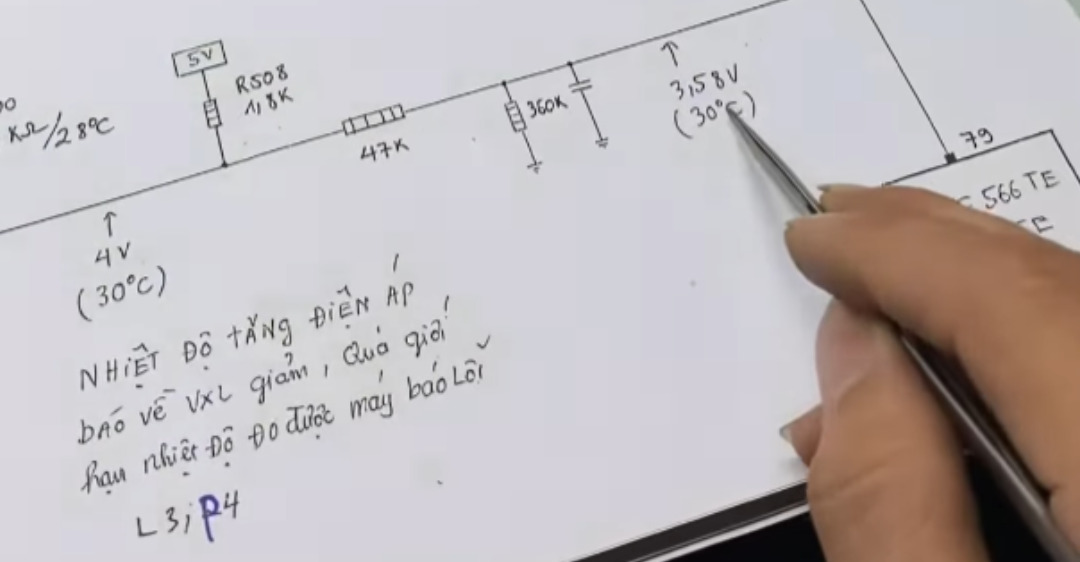 5V
R508
1,8K
KΩ/28°C
47K
360K
3,58V
(30°C)
79
566 TE
TE
4V
(30°C)
NHIỆT ĐỘ TĂNG ĐIỆN ÁP
BÁO VỀ VXL giảm, Quá giới
hạn nhiệt Độ ĐO được máy báo Lỗi
L3; P4